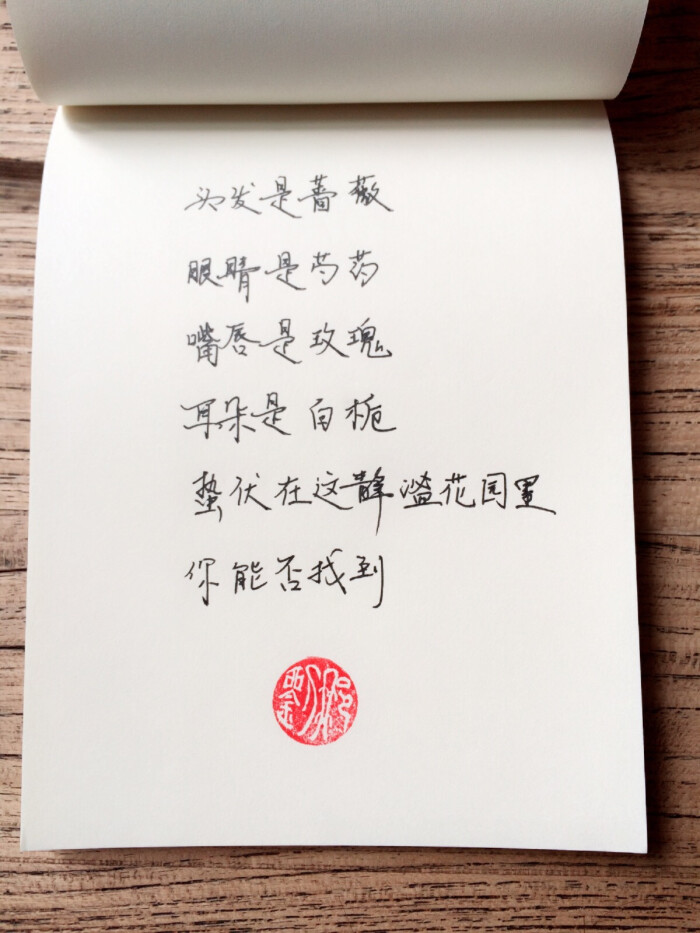 头发是蔷薇
眼睛是芍药
嘴唇是玫瑰
耳朵是白栀
蛰伏在这静谧花园里
你能否找到
劉